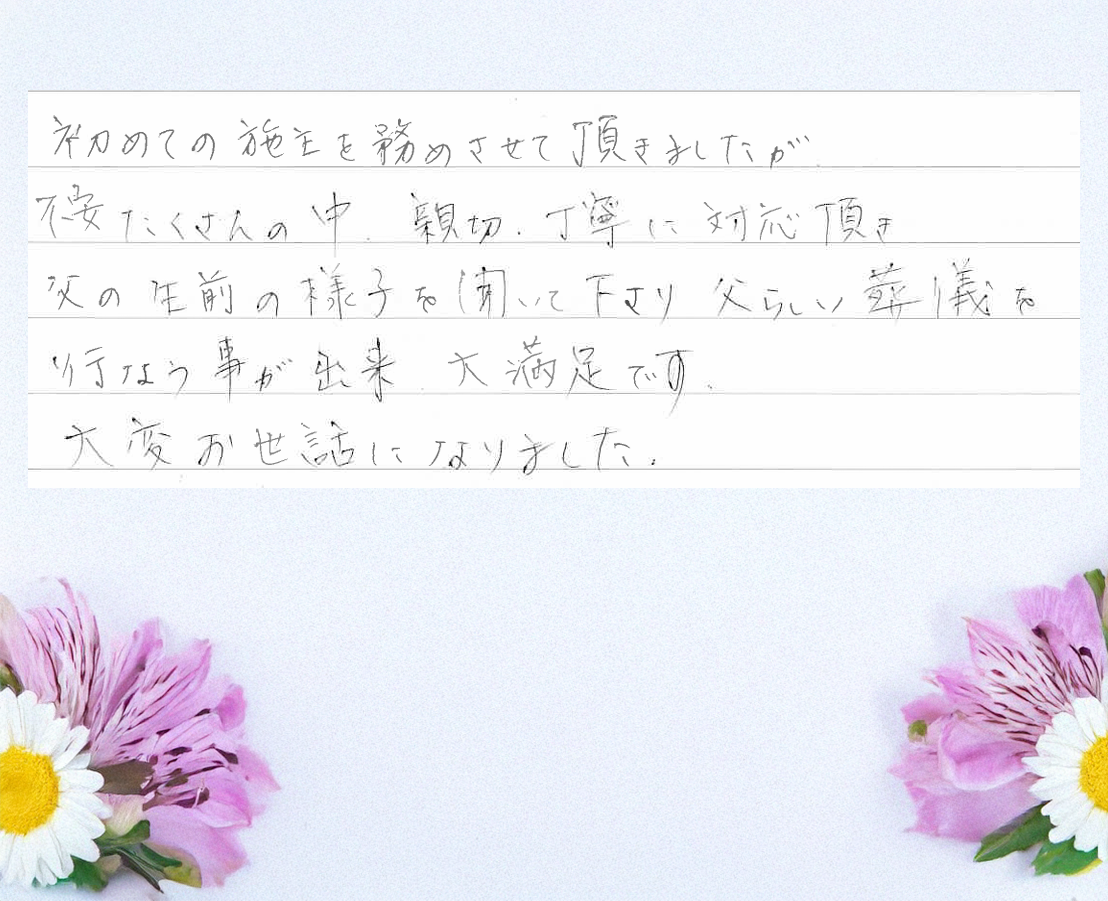 初めての施主を務めさせて頂きましたが
不安たくさんの中、親切、丁寧に対応頂き
父の生前の様子を聞いて下さり 父らしい葬儀を
行なう事が出来、大満足です。
大変お世話になりました。